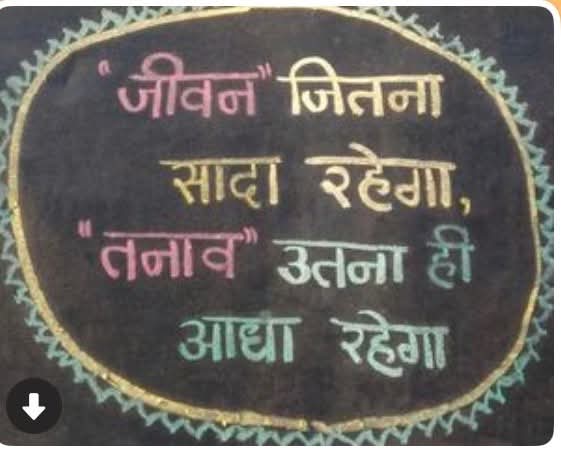 "जीवन" जितना
सादा रहेगा,
"तनाव" उतना ही
आधा रहेगा